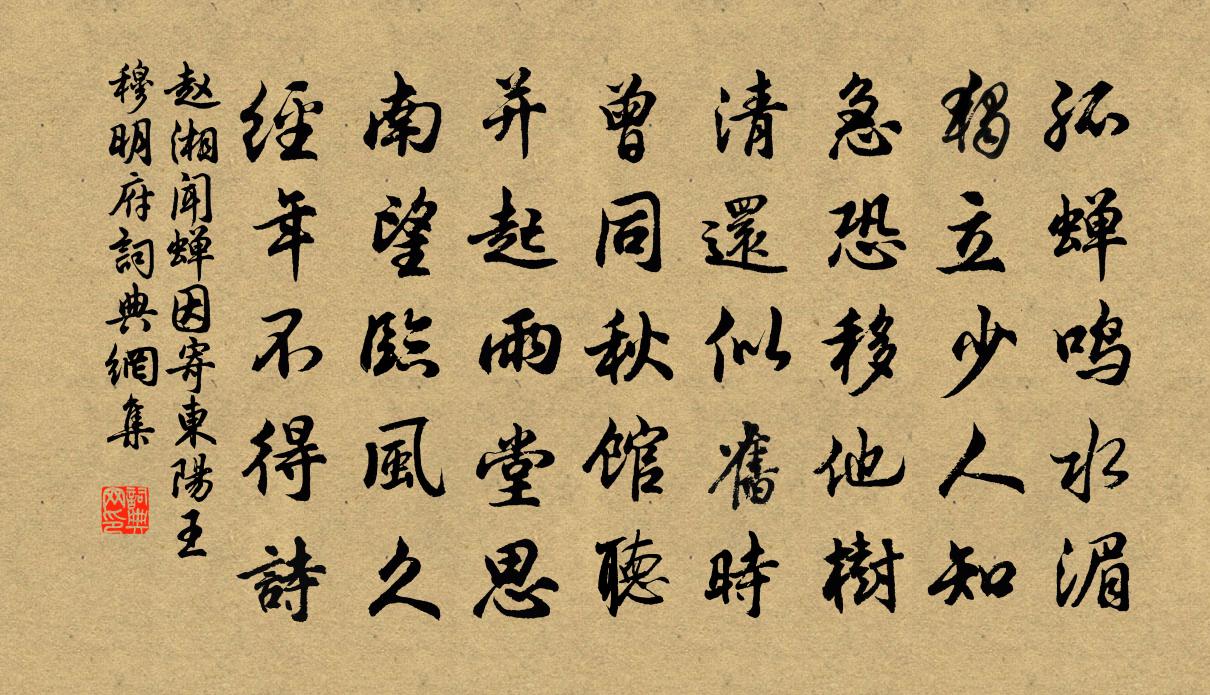 孤蝉鸣水湄
獨立少人知
急恐移他樹
清還似舊時
曾同秋館聽
并起雨堂思
南望臨風久
經年不得詩
赵湘闻蝉因寄東陽王
穆明府詞典網集
詞典
网印